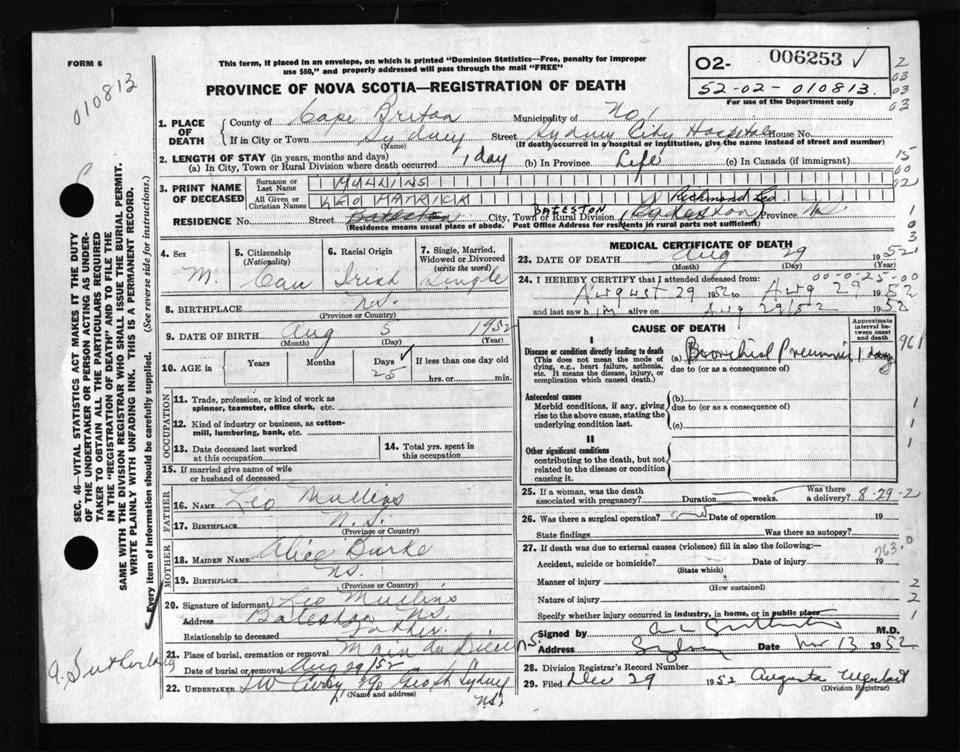 FORM 6
This form, if placed in an envelope, on which is printed "Dominion Statistics—Free, penalty for improper
use $50," and properly addressed will pass through the mail "FREE"
PROVINCE OF NOVA SCOTIA—REGISTRATION OF DEATH
02- 006253
52-02-010813
For use of the Department only
010813
2
03
03
03
1. PLACE OF DEATH
County of Cape Breton Municipality of No
If in City or Town Sydney (Name) Street Sydney City Hospital House No.
(If death occurred in a hospital or institution, give the name instead of street and number)
2. LENGTH OF STAY (in years, months and days)
(a) In City, Town or Rural Division where death occurred 1 day (b) In Province Life (c) In Canada (if immigrant)
15
00
02
3. PRINT NAME OF DECEASED
Surname or Last Name MULLINS
All Given or Christian Names LEO PATRICK
Richmond Co.
RESIDENCE No. Street Bateston City, Town or Rural Division BATESTON Province NS.
(Residence means usual place of abode. Post Office Address for residents in rural parts not sufficient)
4. Sex M.
5. Citizenship (Nationality) Can
6. Racial Origin Irish
7. Single, Married, Widowed or Divorced (write the word) Single
8. BIRTHPLACE N.S. (Province or Country)
9. DATE OF BIRTH Aug 5 1952
(Month) (Day) (Year)
10. AGE in Years Months Days 25 If less than one day old hrs. or min.
OCCUPATION
11. Trade, profession, or kind of work as
spinner, teamster, office clerk, etc.
12. Kind of industry or business, as cotton-
mill, lumbering, bank, etc.
13. Date deceased last worked
at this occupation
14. Total yrs. spent in
this occupation
15. If married give name of wife
or husband of deceased
FATHER
16. NAME Leo Mullins
17. BIRTHPLACE N.S. (Province or Country)
MOTHER
18. MAIDEN NAME Alice Burke
19. BIRTHPLACE NS. (Province or Country)
20. Signature of informant Leo Mullins
Address Bateston NS
Relationship to deceased Father
21. Place of burial, cremation or removal Main du Dieu NS.
Date of burial or removal Aug 29/52
22. UNDERTAKER North Sydney
(Name and address) NS.
MEDICAL CERTIFICATE OF DEATH
23. DATE OF DEATH Aug 29 1952
(Month) (Day) (Year)
24. I HEREBY CERTIFY that I attended deceased from: 00-0-25-00
August 29 1952 to Aug 29 1952
and last saw him alive on Aug 29/52 1952
CAUSE OF DEATH
Approximate interval between onset and death
I
Disease or condition directly leading to death
(This does not mean the mode of
dying, e.g., heart failure, asthenia,
etc. It means the disease, injury, or
complication which caused death.)
(a) Bronchial Pneumonia 1 day
due to (or as a consequence of)
961
Antecedent causes
Morbid conditions, if any, giving
rise to the above cause, stating the
underlying condition last.
(b)
due to (or as a consequence of)
(c)
1
1
1
II
Other significant conditions
contributing to the death, but not
related to the disease or condition
causing it.
25. If a woman, was the death
associated with pregnancy? Duration weeks. Was there a delivery? 8-29-2
26. Was there a surgical operation? Date of operation 19
State findings Was there an autopsy?
27. If death was due to external causes (violence) fill in also the following:—
763.0
Accident, suicide or homicide? (State which) Date of injury 19
Manner of injury (How sustained)
Nature of injury
Specify whether injury occurred in industry, in home, or in public place
2
2
1
Signed by M.D.
Address Sydney Date Nov 13 1952
28. Division Registrar's Record Number
29. Filed Dec 29 1952 Augusta
(Division Registrar)
SEC. 46—VITAL STATISTICS ACT MAKES IT THE DUTY
OF THE UNDERTAKER OR PERSON ACTING AS UNDER-
TAKER TO OBTAIN ALL THE PARTICULARS REQUIRED
IN THE "REGISTRATION OF DEATH" AND TO FILE THE
SAME WITH THE DIVISION REGISTRAR WHO SHALL ISSUE THE BURIAL PERMIT.
WRITE PLAINLY WITH UNFADING INK. THIS IS A PERMANENT RECORD.
Every item of information should be carefully supplied. (See reverse side for instructions.)
A. Sutherland